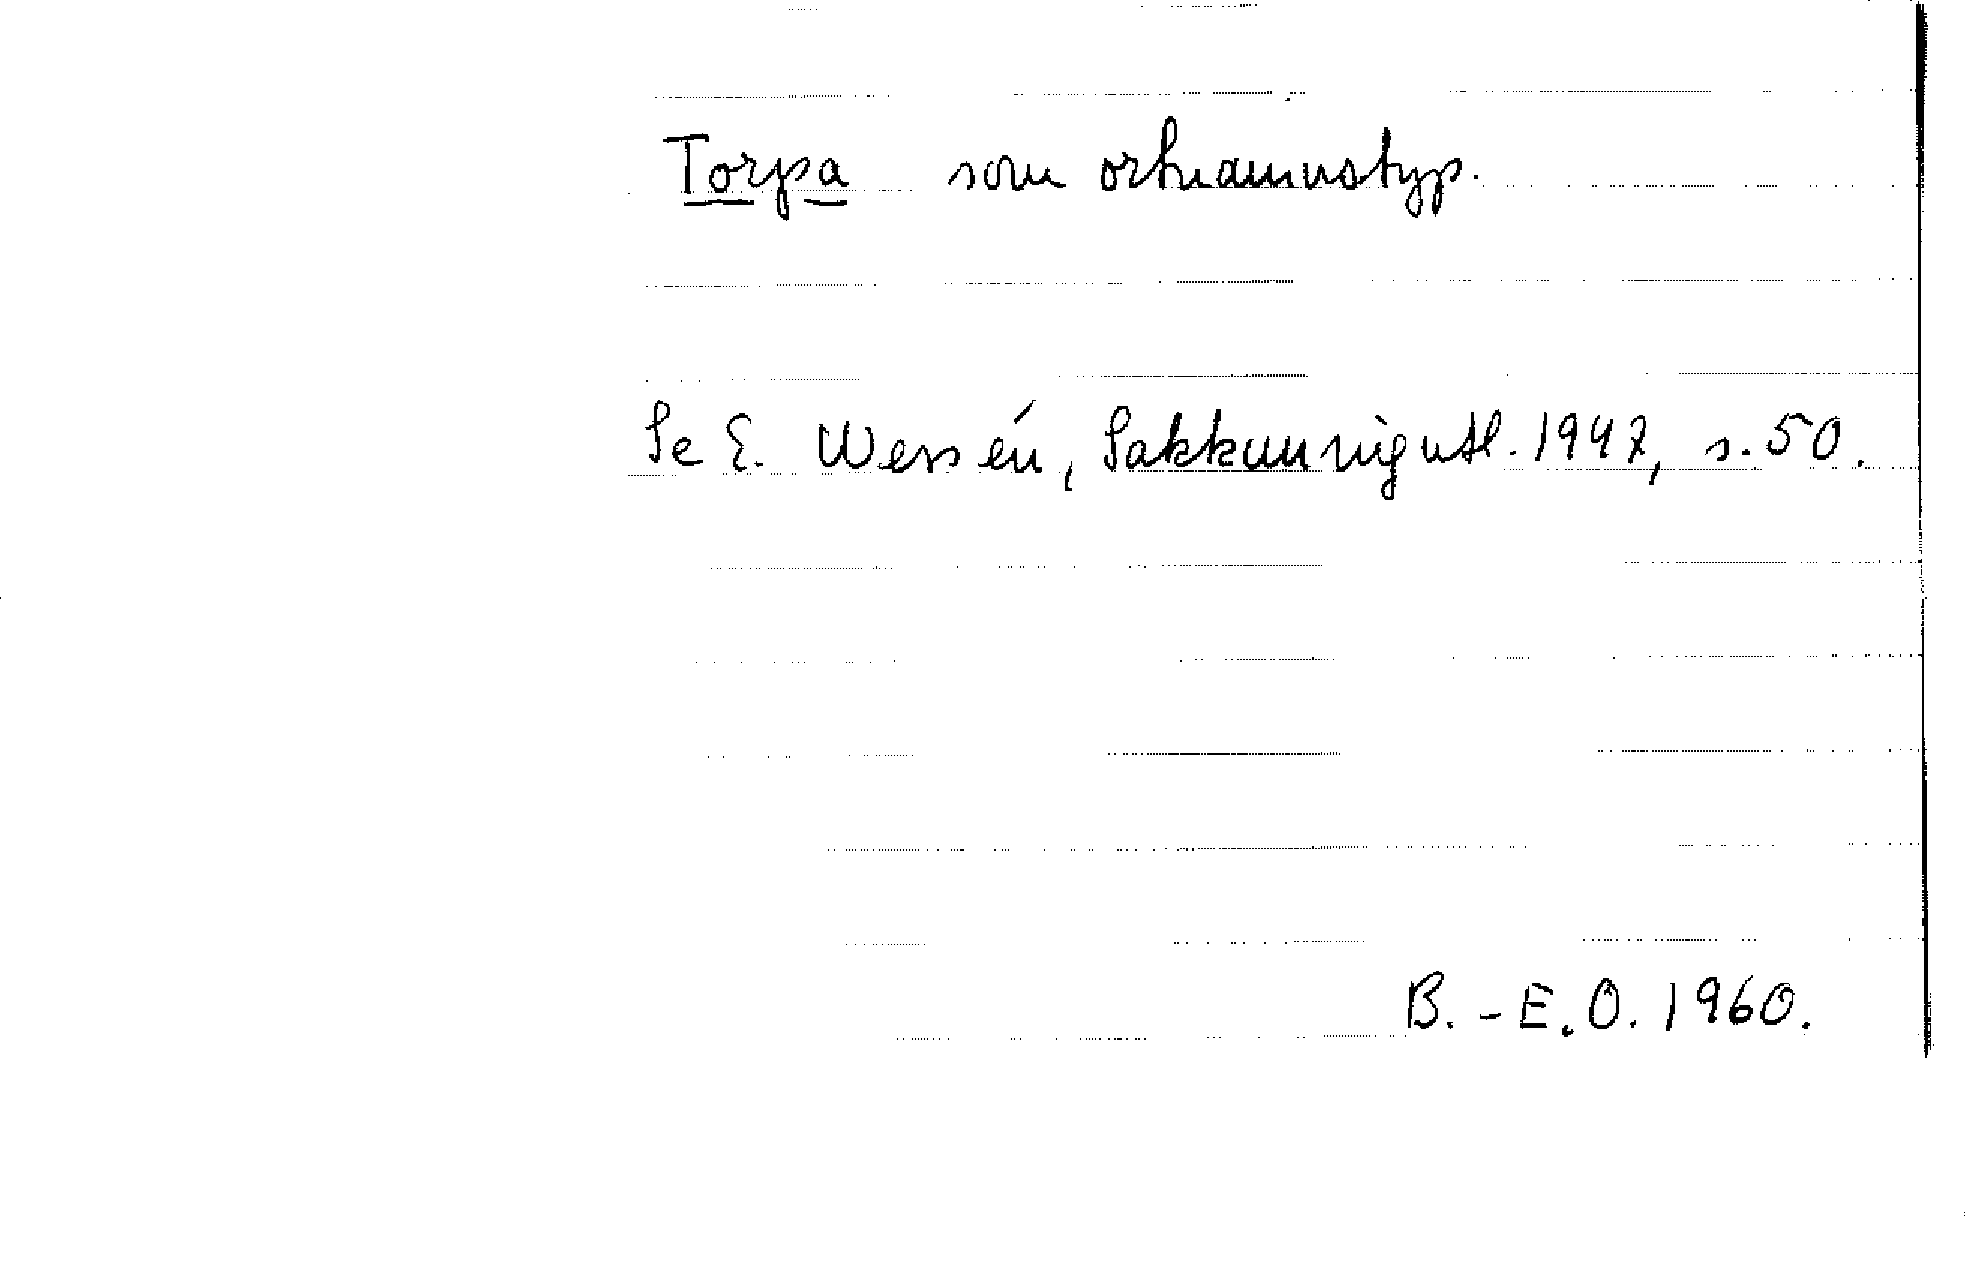 Torpa som ortnamnstyp.
Se E. Wessén, Sakkunnigutl. 1947, s. 50.
B.-E.O. 1960.